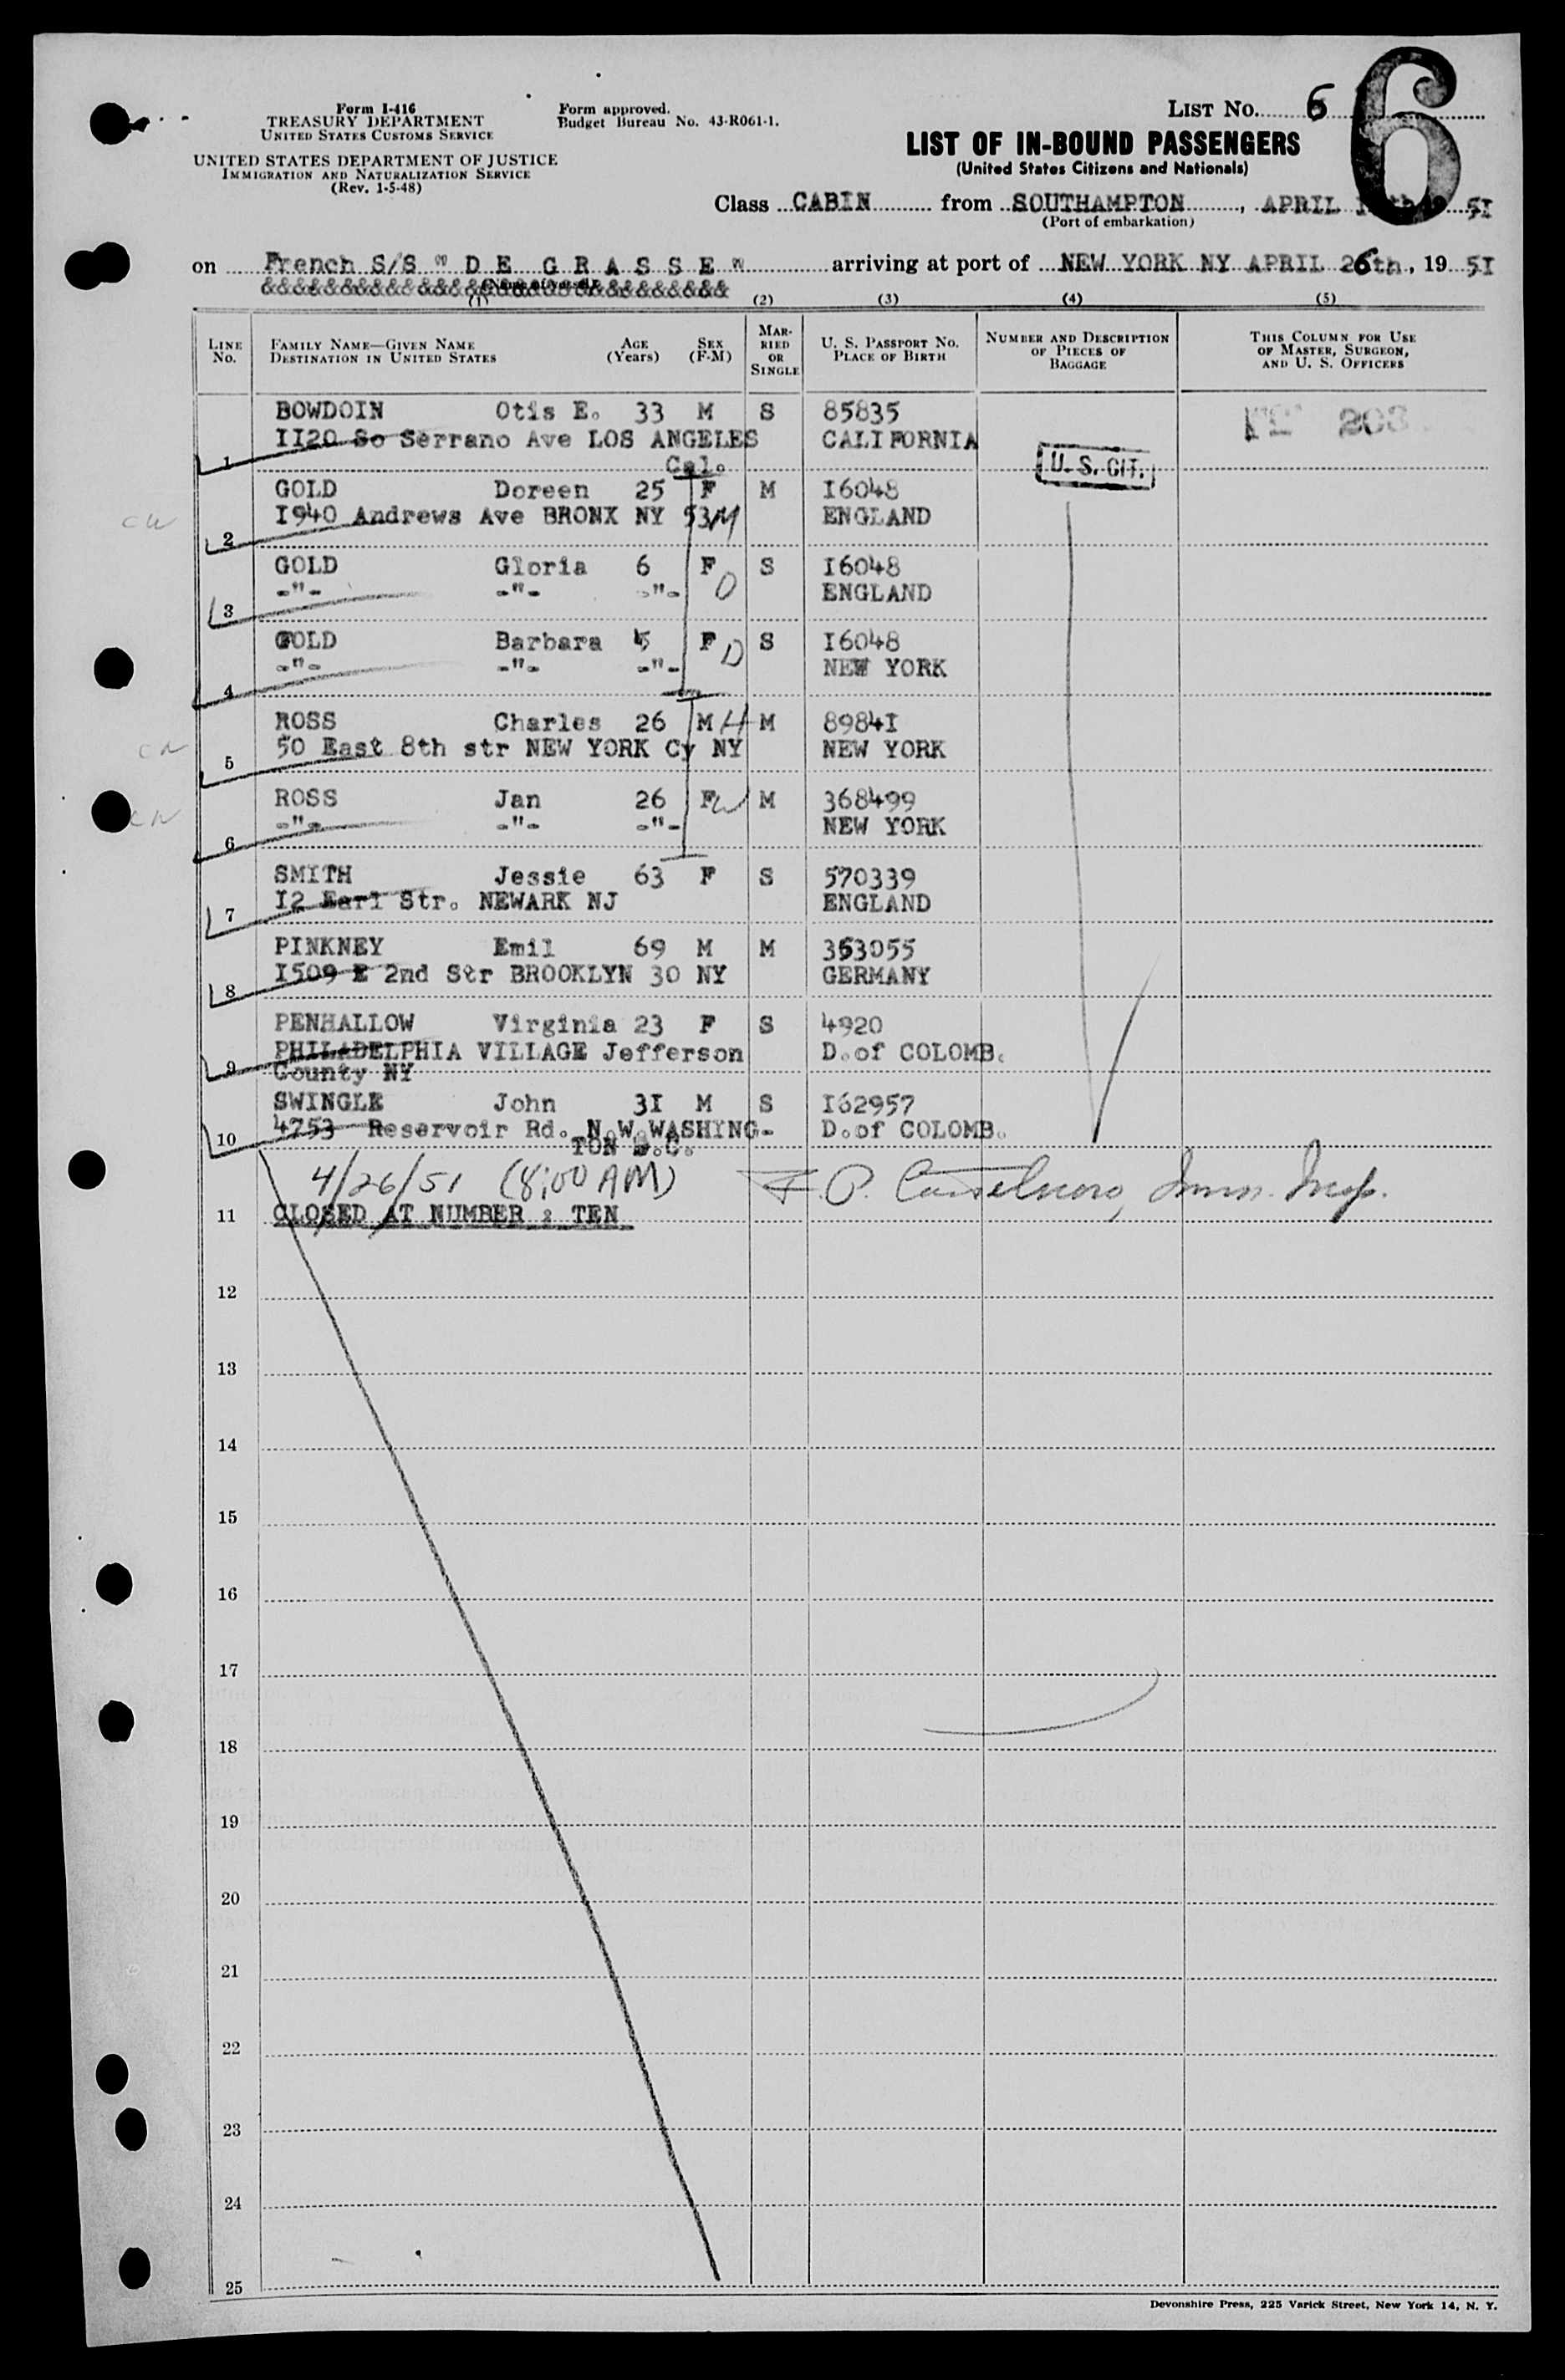 Form I-416
TREASURY DEPARTMENT
UNITED STATES CUSTOMS SERVICE
UNITED STATES DEPARTMENT OF JUSTICE
IMMIGRATION AND NATURALIZATION SERVICE
(Rev. 1-5-48)
Form approved.
Budget Bureau No. 43-R061-1.
LIST No. 6
6
LIST OF IN-BOUND PASSENGERS
(United States Citizens and Nationals)
Class CABIN from SOUTHAMPTON, APRIL 51
(Port of embarkation)
on French S/S " D E G R A S S E " arriving at port of NEW YORK NY APRIL 26th, 19 51
(1) (2) (3) (4) (5)
LINE No. FAMILY NAME—GIVEN NAME DESTINATION IN UNITED STATES AGE (Years) SEX (F-M) MARRIED OR SINGLE U. S. PASSPORT No. PLACE OF BIRTH NUMBER AND DESCRIPTION OF PIECES OF BAGGAGE THIS COLUMN FOR USE OF MASTER, SURGEON, AND U. S. OFFICERS
BOWDOIN Otis E. 33 M S 85835
1 II20 So Serrano Ave LOS ANGELES CALIFORNIA
Cal.
U. S. CIT.
GOLD Doreen 25 F M I6048
2 I940 Andrews Ave BRONX NY 53 M ENGLAND
GOLD Gloria 6 F S I6048
3 -"- -"- -"- D ENGLAND
GOLD Barbara 5 F D S I6048
4 -"- -"- -"- NEW YORK
ROSS Charles 26 M H M 8984I
5 50 East 8th str NEW YORK Cy NY NEW YORK
ROSS Jan 26 F W M 368499
6 -"- -"- -"- NEW YORK
SMITH Jessie 63 F S 570339
7 I2 Earl Str. NEWARK NJ ENGLAND
PINKNEY Emil 69 M M 353055
8 I509 E 2nd Str BROOKLYN 30 NY GERMANY
PENHALLOW Virginia 23 F S 4920
9 PHILADELPHIA VILLAGE Jefferson D.of COLOMB.
County NY
SWINGLE John 3I M S I62957
10 4753 Reservoir Rd. N.W.WASHING- D.of COLOMB.
TON D.C.
4/26/51 (8:00 AM) Imm. Insp.
11 CLOSED AT NUMBER : TEN
12
13
14
15
16
17
18
19
20
21
22
23
24
25
Devonshire Press, 225 Varick Street, New York 14, N. Y.